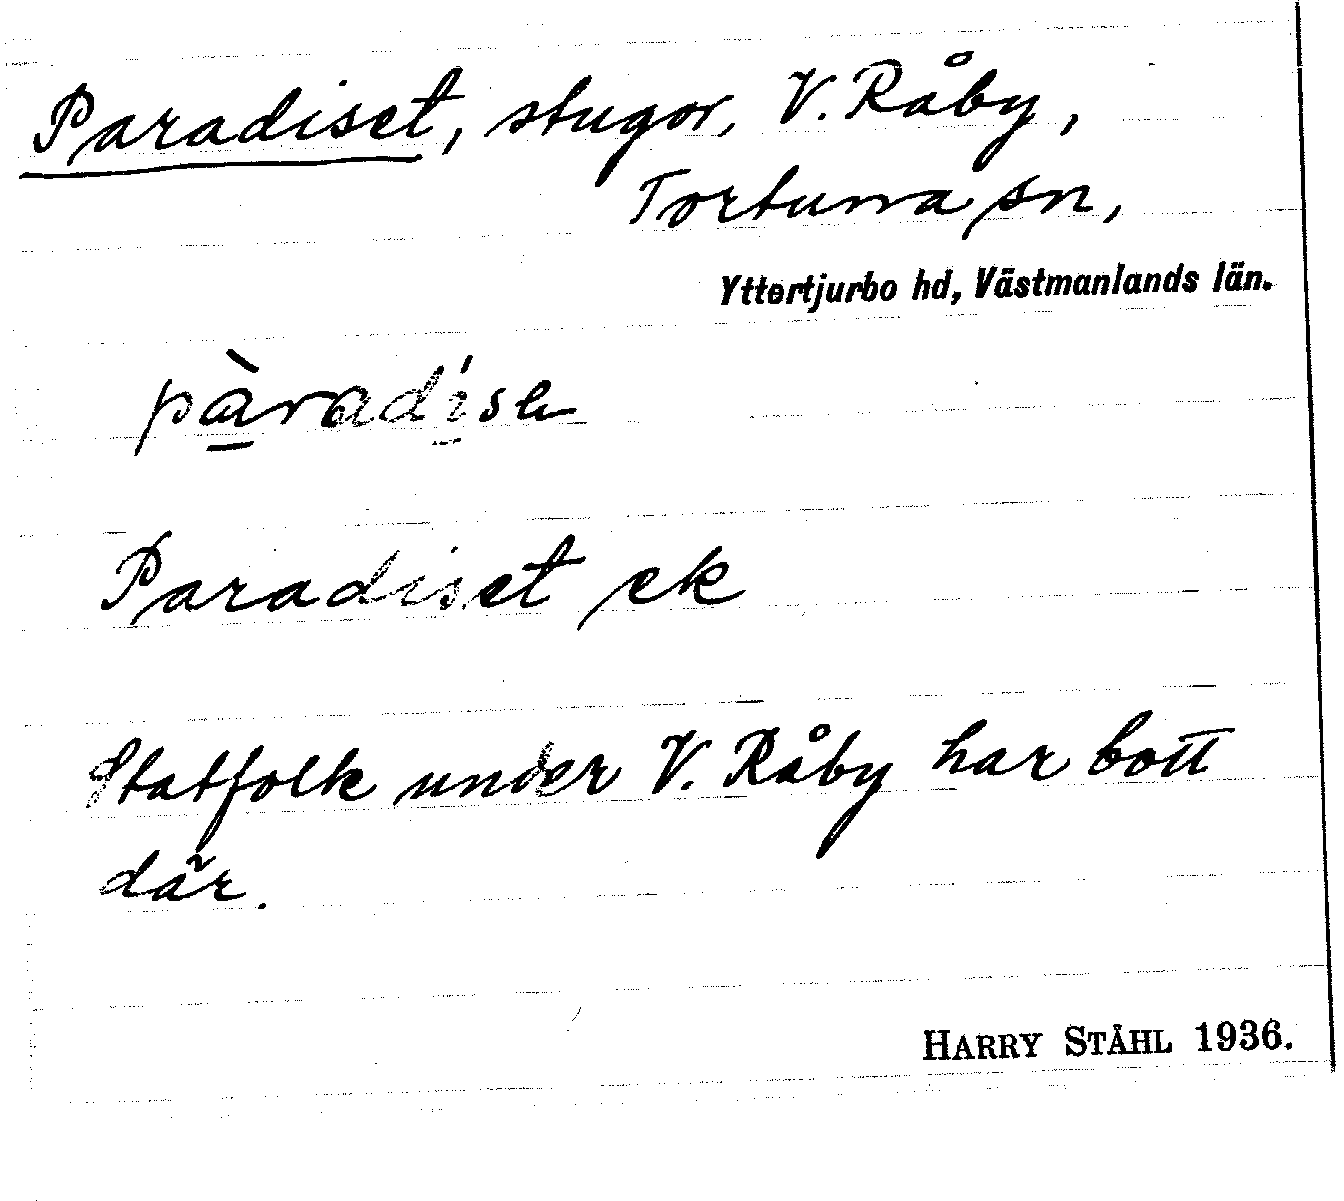 Paradiset, stugor, V. Råby,
Tortuna sn,
Yttertjurbo hd, Västmanlands län.
pàradíse
Paradiset ek
Statfolk under V. Råby har bott
där.
HARRY STÅHL 1936.